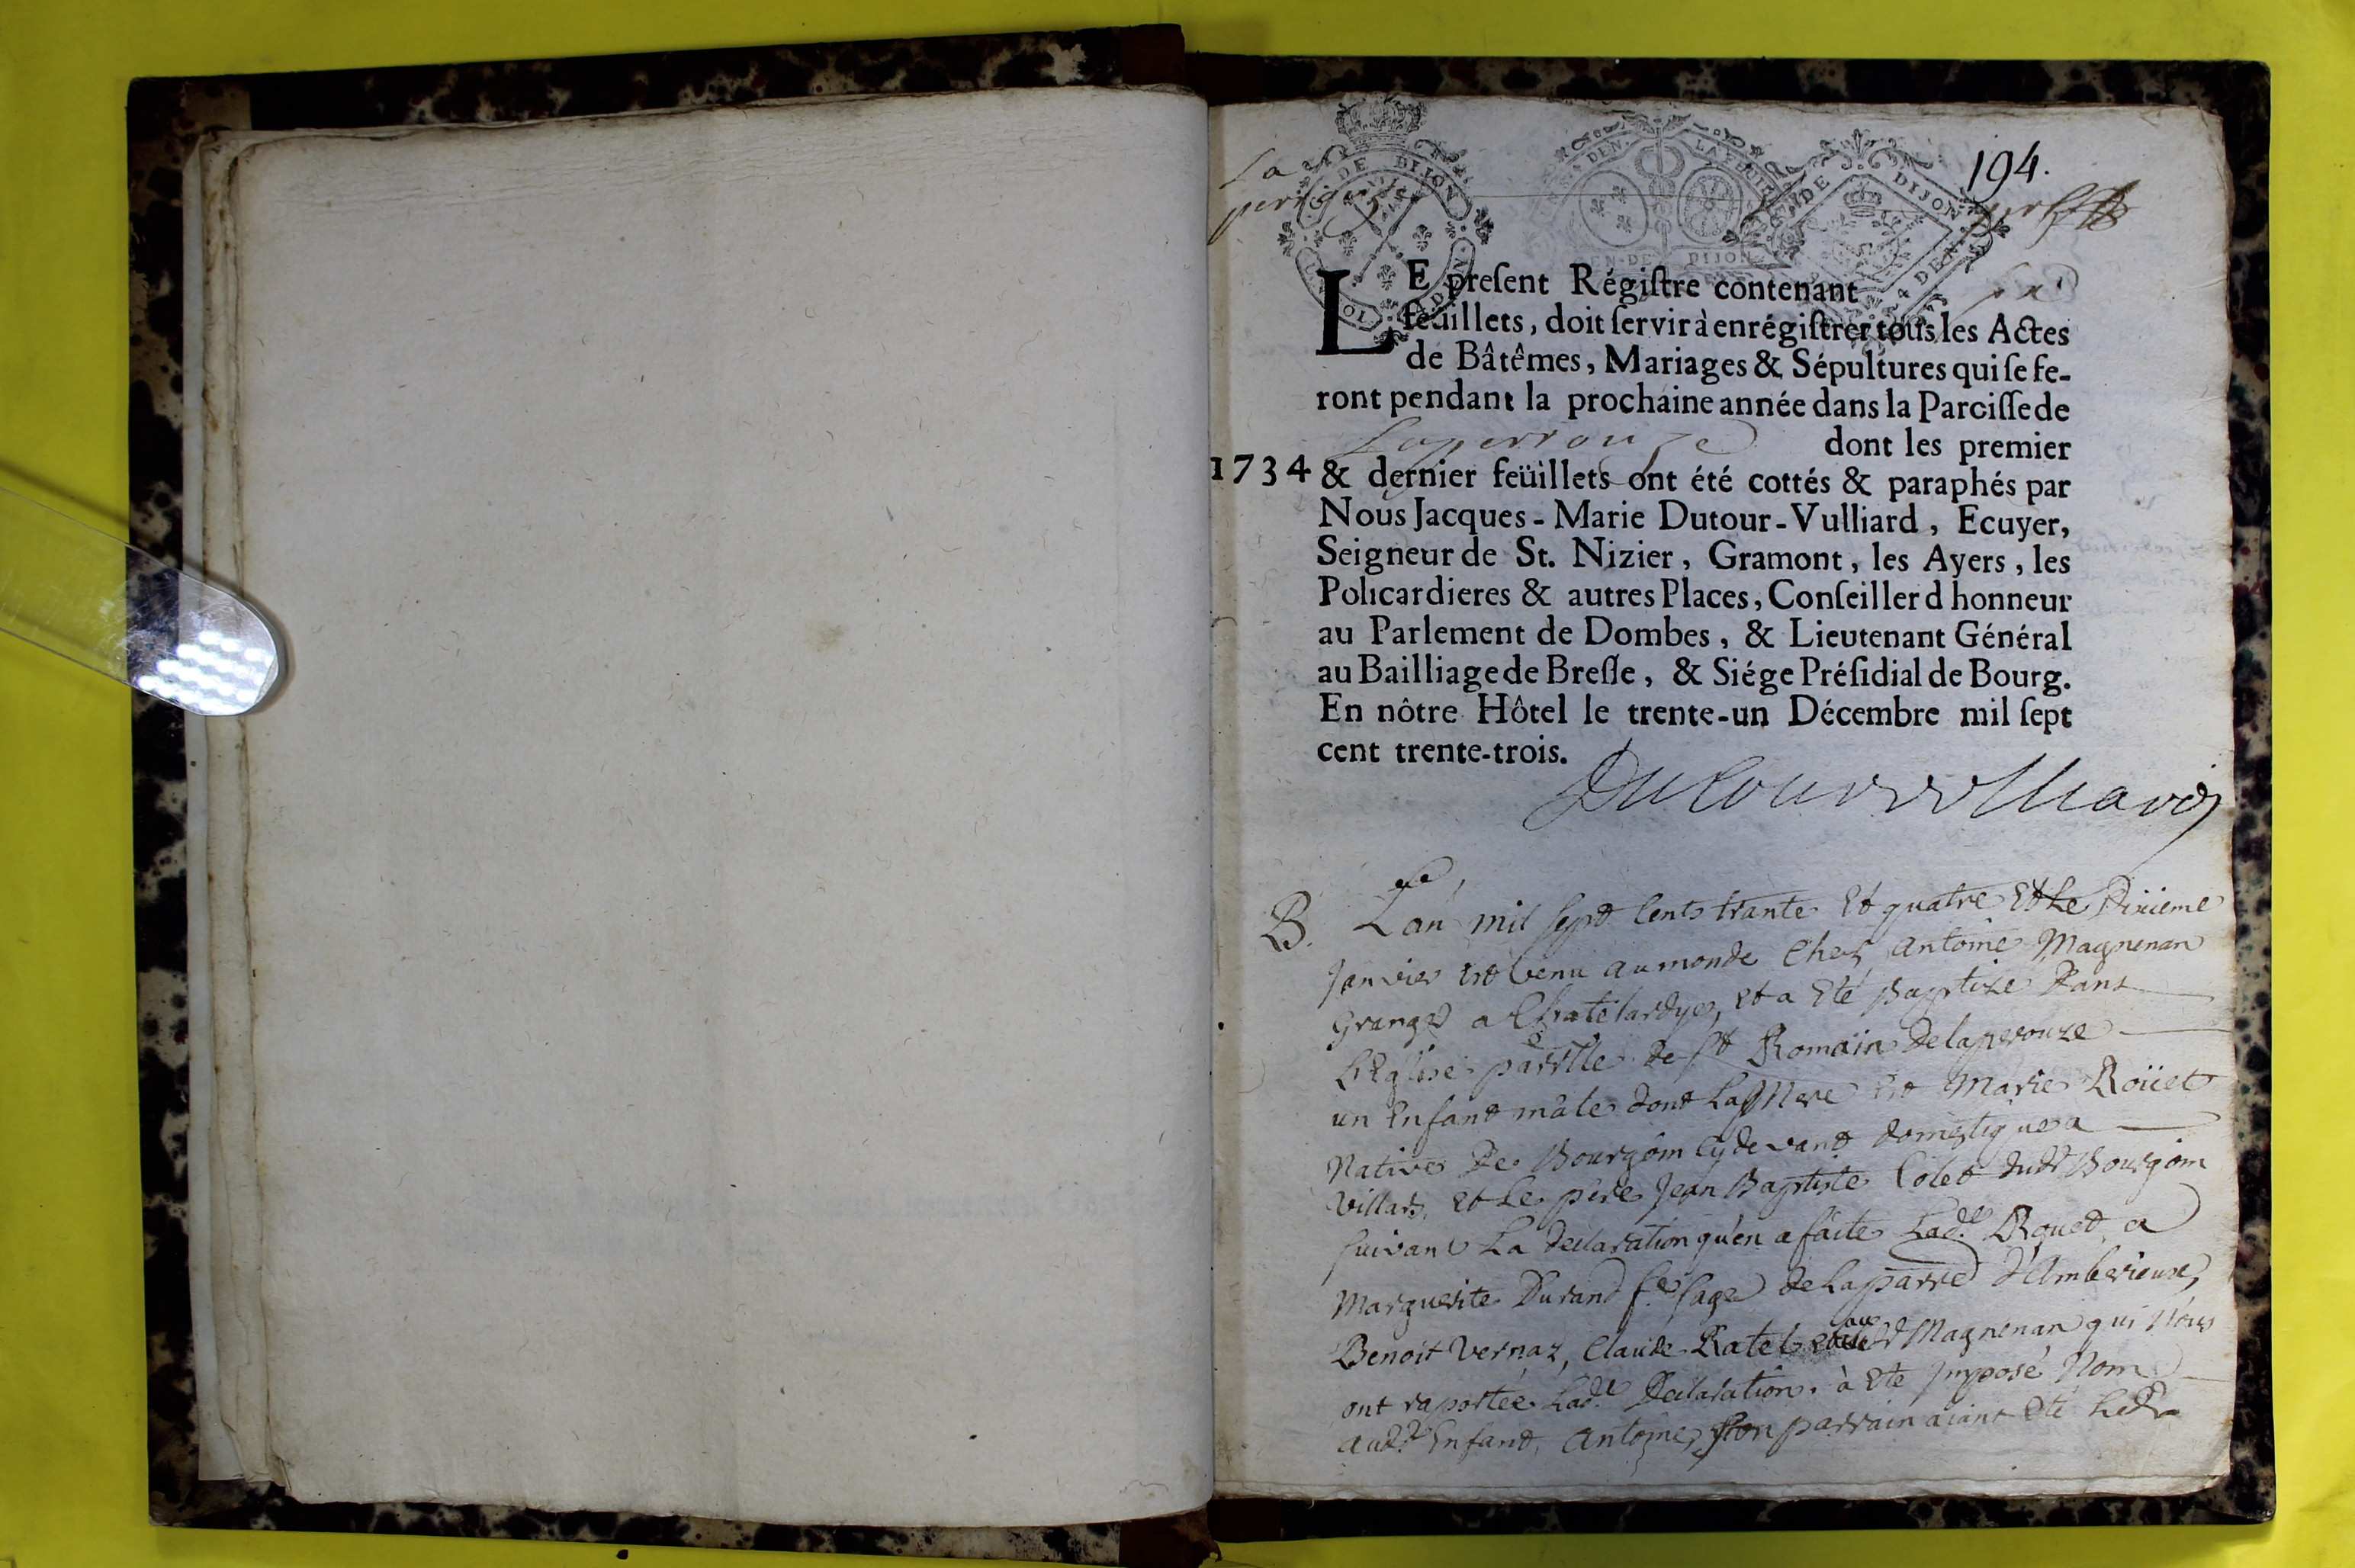 194.
La
perrouze
LE preſent Régiſtre contenant
feüillets, doit ſervir à enrégiſtrer tous les Actes
de Bâtêmes, Mariages & Sépultures qui ſe fe-
ront pendant la prochaine année dans la Paroiſſe de
Laperrouze dont les premier
1734 & dernier feüillets ont été cottés & paraphés par
Nous Jacques-Marie Dutour-Vulliard, Ecuyer,
Seigneur de St. Nizier, Gramont, les Ayers, les
Policardieres & autres Places, Conſeiller d honneur
au Parlement de Dombes, & Lieutenant Général
au Bailliage de Breſſe, & Siége Préſidial de Bourg.
En nôtre Hôtel le trente-un Décembre mil ſept
cent trente-trois.
Dutourvulliard
B. L'an mil sept cents trante et quatre et le Dixieme
Janvier est venu au monde Chez antoine Magnenan
Granger a Chatelardye, et a été Baptizé Dans
L'Eglise parrlle de st Romain Delaperouze
un Enfant mâle dont La Mere est Marie Roüet
Native De Bourgoin Cydevant domestique a
Villars, et Le pere Jean Baptiste Colet dudt Bourgoin
suivant La declaration qu'en a faite Lade Rouet a
Marguerite Durand fe sage de La parre d'Amberieux,
Benoit Vernaz, Claude Ratel Magnenan qui Nous
ont raportée Lade Declaration. à eté Imposé Nom
audt Enfant, Antoine, son parrain aiant eté Ledt